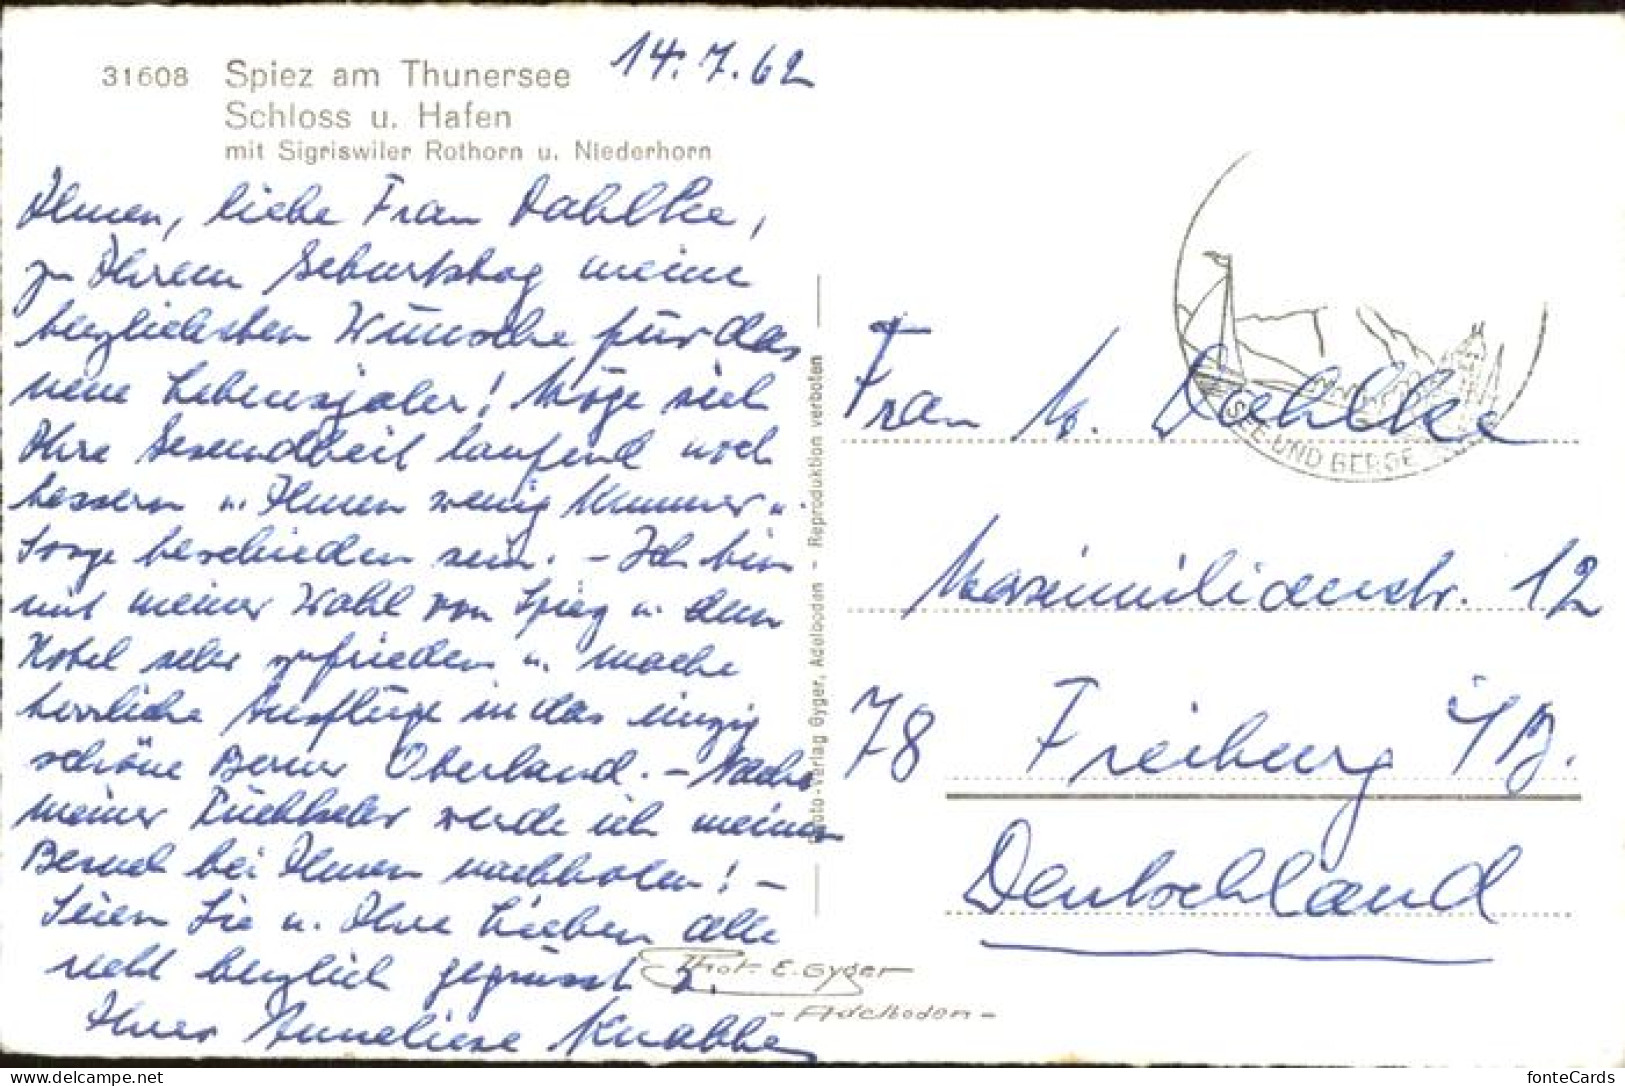 14.7.62
31608 Spiez am Thunersee
Schloss u. Hafen
mit Sigriswiler Rothorn u. Niederhorn
Ihnen, liebe Frau Dahlke,
zu Ihrem Geburtstag meine
herzlichsten Wünsche für das
neue Lebensjahr! Möge sich
Ihre Gesundheit laufend noch
bessern u. Ihnen wenig Kummer u.
Sorge beschieden sein. – Ich bin
mit meiner Wahl von Spiez u. dem
Hotel sehr zufrieden u. mache
herrliche Ausflüge in das einzig
schöne Berner Oberland. – Nach
meiner Rückkehr werde ich meinen
Besuch bei Ihnen nachholen! –
Seien Sie u. Ihre Lieben alle
recht herzlich gegrüsst v.
Ihrer Anneliese Knabbe
Photo-Verlag Gyger, Adelboden – Reproduktion verboten
Phot. E. Gyger
- Adelboden -
SEE UND BERGE
Frau M. Dahlke
Maximilianstr. 12
78 Freiburg i/B.
Deutschland
fonteCards